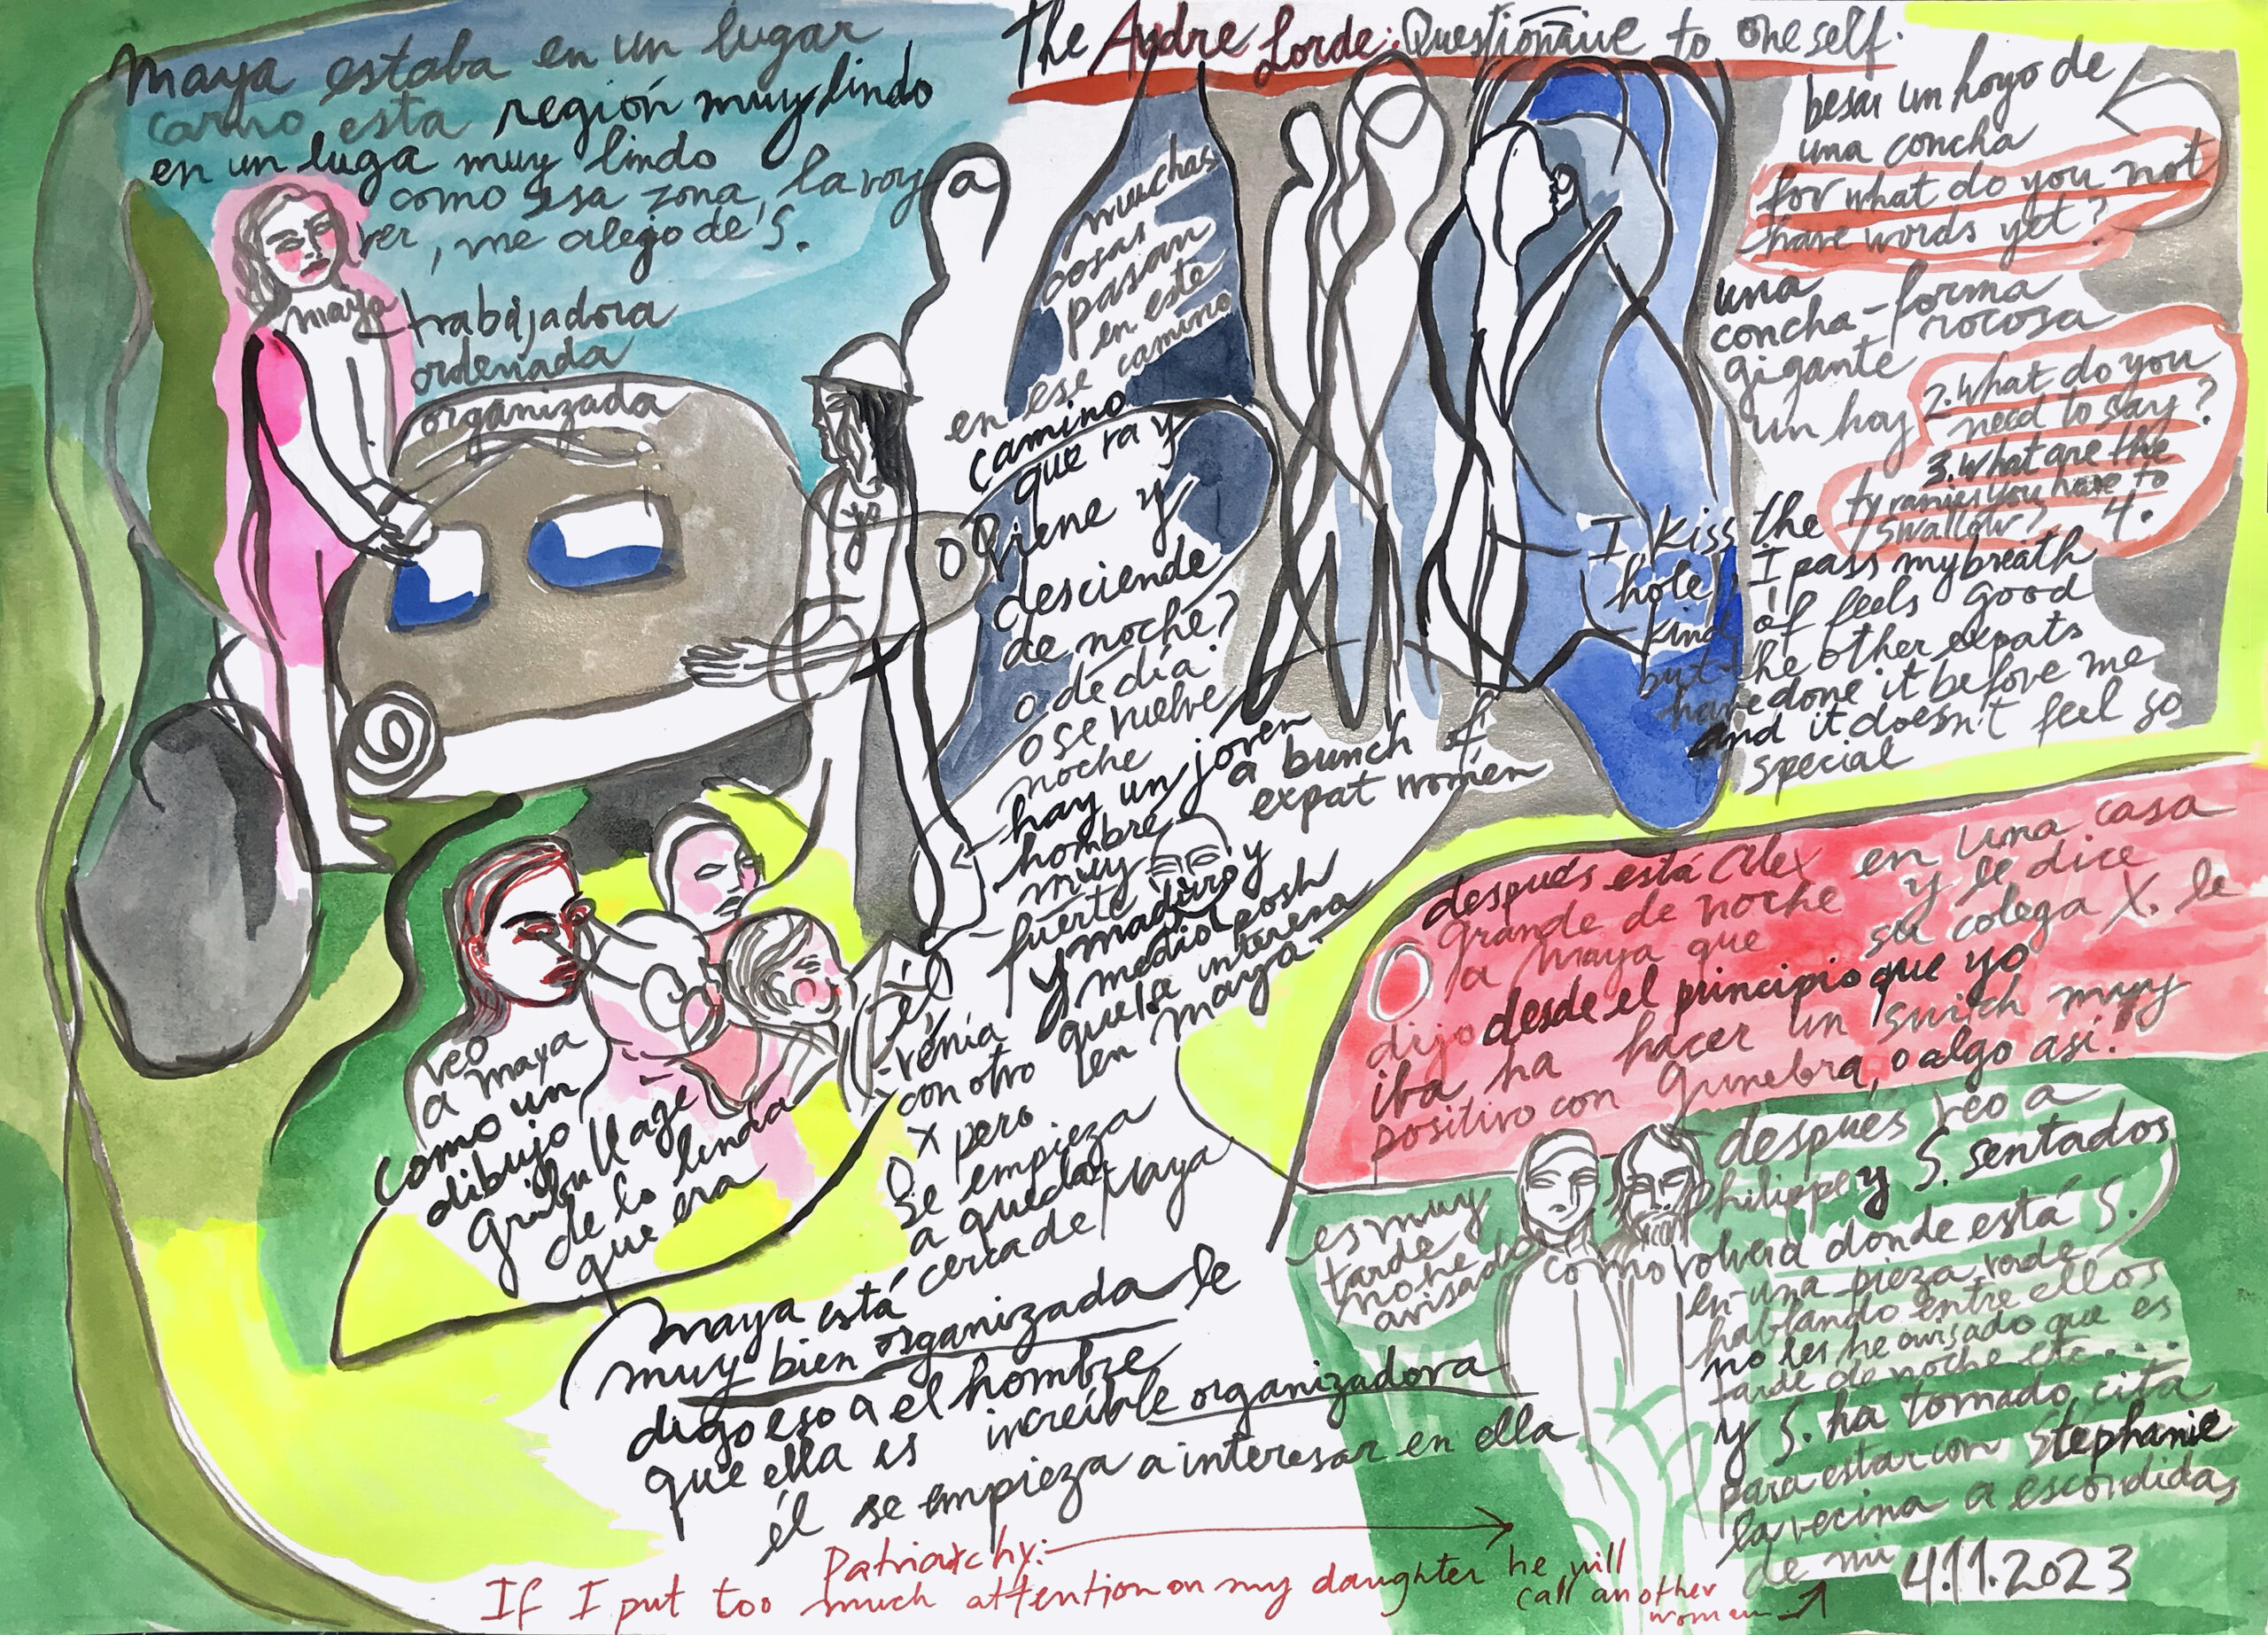 Maya estaba en un lugar
como esta región muy lindo
en un luga muy lindo
como esa zona, la voy a
ver, me alejo de S.
maya
trabajadora
ordenada
organizada
yo
The Audre Lorde: Questionaive to oneself.
muchas
cosas
pasan
en este
camino
en ese
camino
que va y
viene y
desciende
de noche?
o de día
o se vuelve
noche
hay un joven
hombre
muy
fuerte
y maduro y
medio posh
que se interesa
en maya.
él
venía
con otro
x pero
se empieza
a quedar
cerca de Maya
a bunch of
expat women
besar un hoyo de
una concha
for what do you not
have words yet?
una
concha-forma
gigante rocosa
un hoy
2. What do you
need to say?
3. What are the
tyranies you have to
swallow? 4.
I kiss the
hole, I pass my breath
kind of feels good
but the other expats
have done it before me
and it doesn't feel so
special
veo
a maya
como un
dibujo,
de lo linda
que era
Maya está
muy bien organizada le
digo eso a el hombre
que ella es increíble organizadora
él se empieza a interesar en ella
después está Alex en una casa
grande de noche y le dice
a Maya que su colega X. le
dijo desde el principio que yo
iba ha hacer un switch muy
positivo con Gunebra, o algo así.
después veo a
Philippe y S. sentados
como volverá donde está S.
en una pieza verde
hablando entre ellos
no les he avisado que es
tarde de noche etc....
y S. ha tomado cita
para estar con Stephanie
la vecina a escondidas
de mi
es muy
tarde
no he
avisado
4.11.2023
Patriarchy:
If I put too much attention on my daughter he will
call another
women